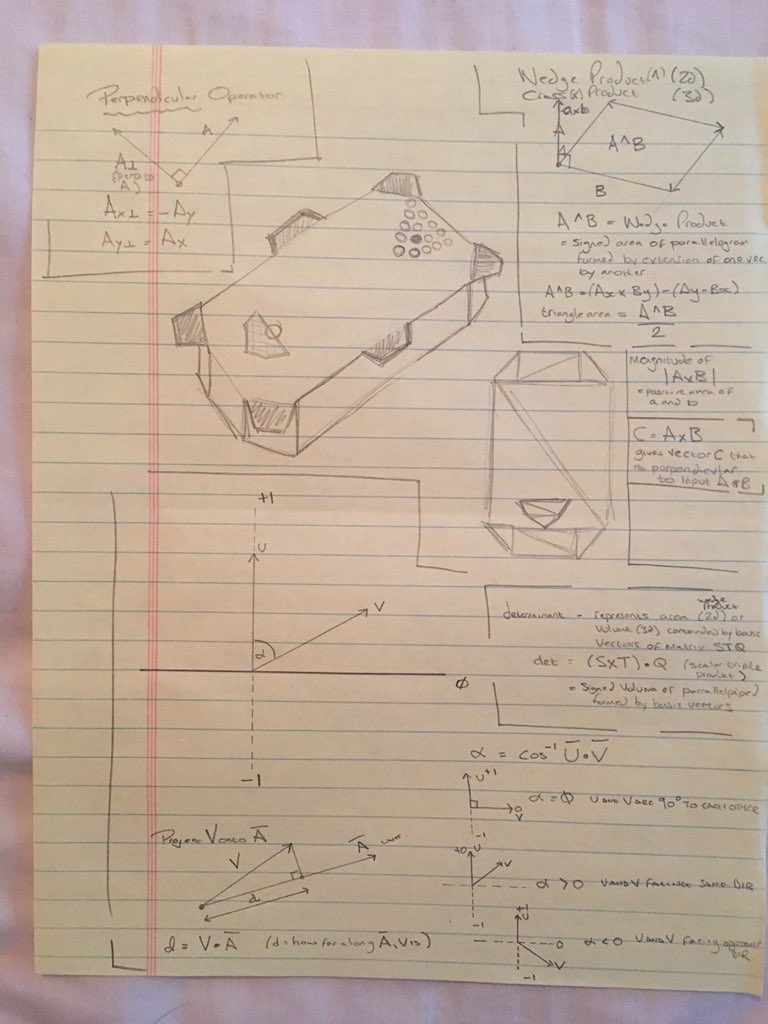 Perpendicular Operator
A
A⊥
(perp to
A)
Ax⊥ = -Ay
Ay⊥ = Ax
Wedge Product (^) (2d)
Cross (x) Product (3d)
axb
A
A^B
B
A^B = Wedge Product
= Signed area of parallelogram
formed by extension of one vec
by another.
A^B = (Ax x By) - (Ay - Bx)
triangle area = A^B
2
Magnitude of
|AxB|
= positive area of
a and b
C = AxB
gives vector C that
is perpendicular
to input A & B
+1
U
V
α
Φ
-1
determinant - represents area (2d) or
wedge product
Volume (3d) contained by basis
Vectors of Matrix STQ
det = (SxT)•Q (scalar triple
product)
= Signed Volume of parrallelpiped
formed by basis vectors
α = cos⁻¹ U̅•V̅
U +1
0
V
-1
α = Φ U AND V ARE 90° TO EACH OTHER
U
V
-1
α > 0 U AND V FACING SAME DIR
+1
U
0
V
-1
α < 0 U AND V Facing opposite
DIR
Project V onto A̅
V
A̅ unit
d
d = V•A̅ (d = how far along A̅, V is)